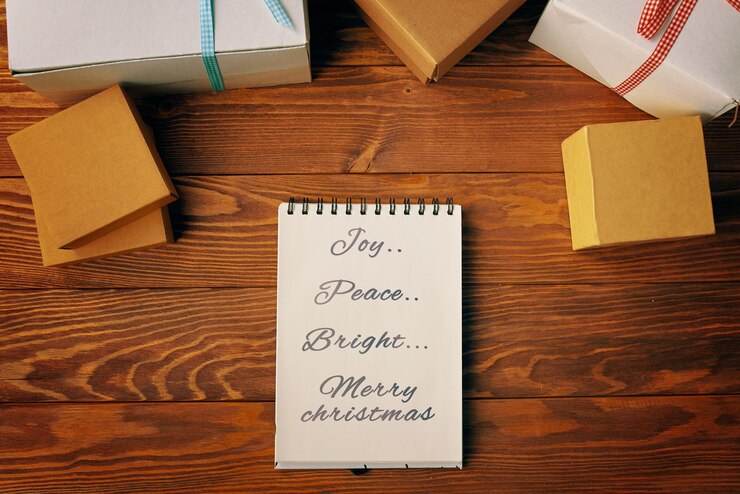 Joy..
Peace..
Bright...
Merry
christmas